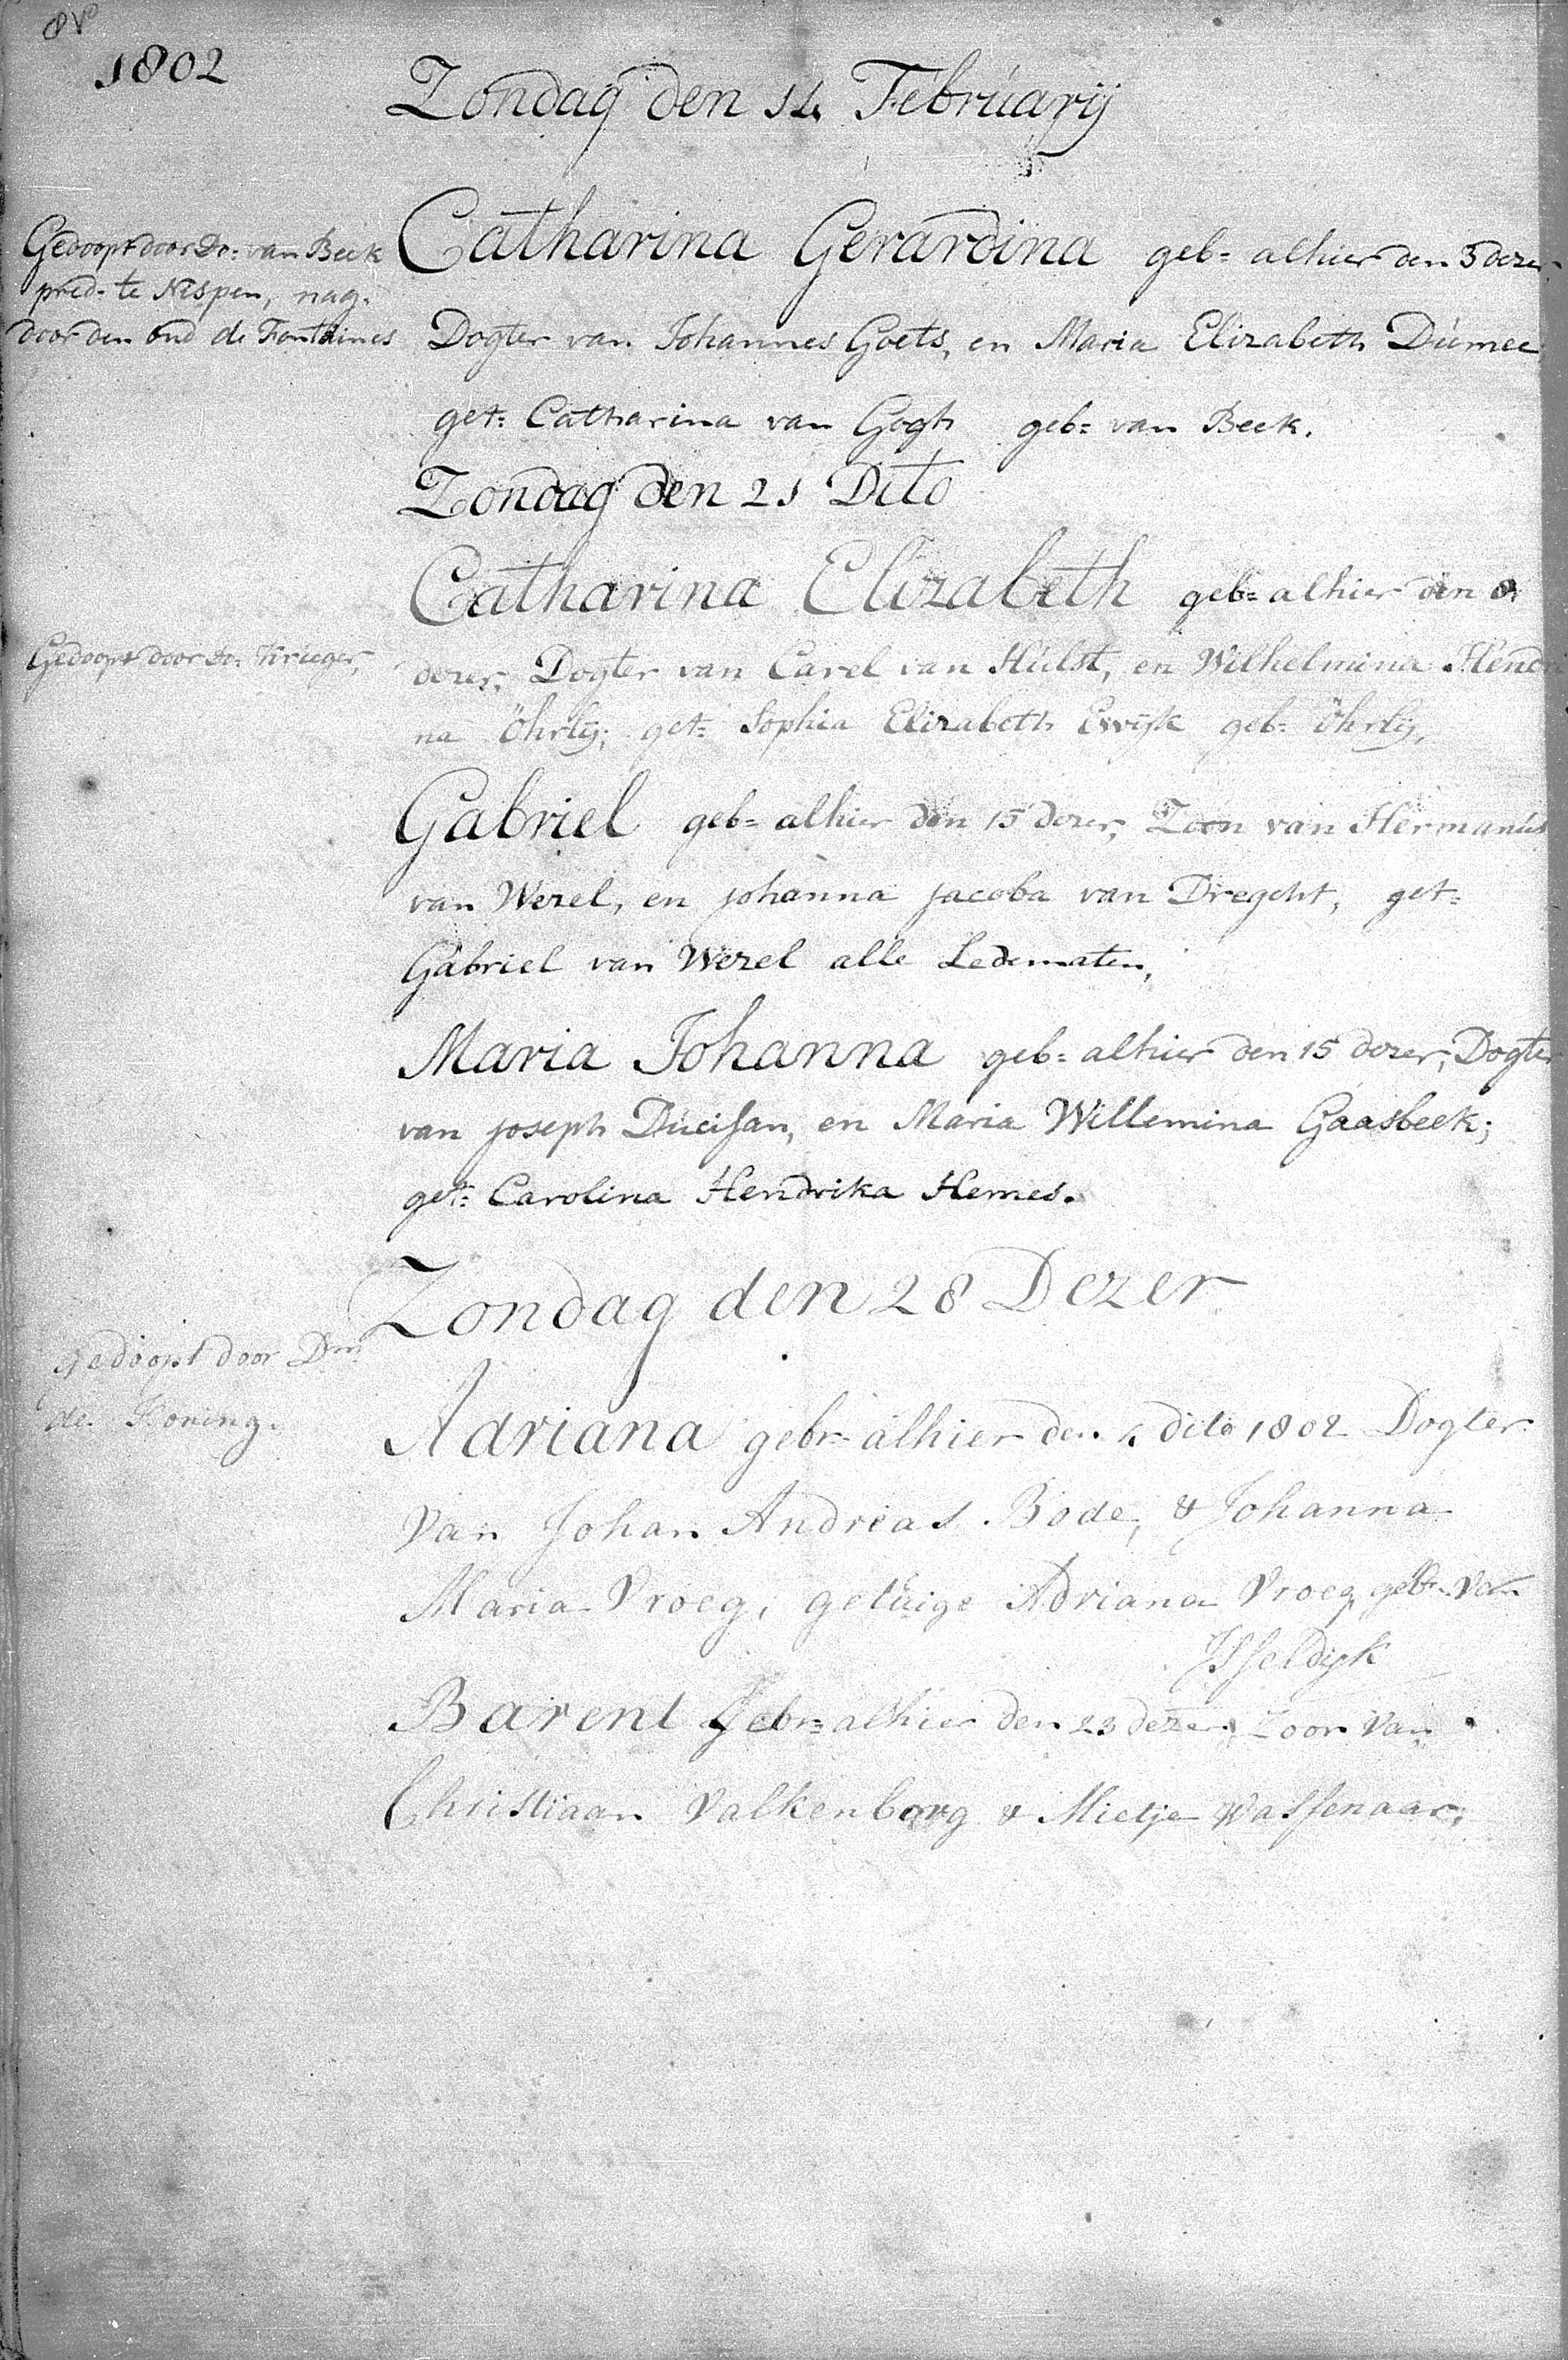 8v
1802
Zondag den 14 Februarij
Gedoopt door Do: van Beek
pred. te Nispen, nag.
door den oud de Fontaines
Catharina Gerardina geb= alhier den 5 dezer
Dogter van Johannes Goets, en Maria Elizabeth Dúmee
get= Catharina van Gogh geb= van Beek.
Zondag den 21 Dito
Catharina Elizabeth geb= alhier den 8
Gedoopt door Do: Krieger,
dezer, Dogter van Carel van Hulst, en Wilhelmina Hendri
na Öhrlij; get= Sophia Elizabeth Ewijk geb= Öhrlij,
Gabriel geb= alhier den 15 dezer, Zoon van Hermanús
van Wezel, en Johanna Jacoba van Dregcht, get=
Gabriel van Wezel alle Ledematen,
Maria Johanna geb= alhier den 15 dezer, Dogter
van Joseph Ducisan, en Maria Willemina Gaasbeek;
get= Carolina Hendrika Hemes.
Zondag den 28 Dezer
gedoopt door Dm:
de Koning.
Adriana gebr= alhier den 4 dito 1802 Dogter
Van Johan Andreas Bode, & Johanna
Maria Vroeg, getúige Adriana Vroeg gebr= Van
IJsseldijk
Barent Gebr= alhier den 23 dezer, Zoon Van
Christiaan Valkenborg & Mietje Wassenaar,